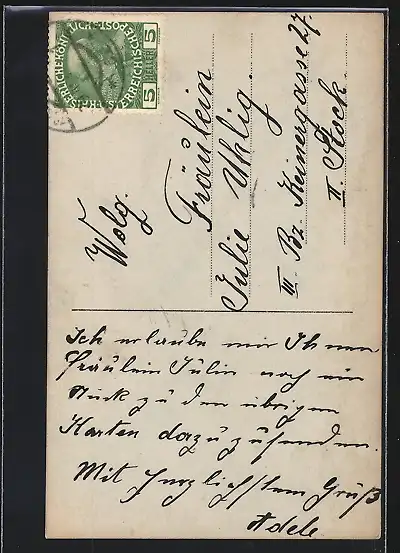 KAISERLICHE KÖNIGLICHE ÖSTERREICHISCHE POST
5 HELLER 5
Wolg.
Fräulein
Julie Uhlig.
III Bz. Keinergasse 27.
II. Stock.
Ich erlaube mir Ihnen
Fräulein Julie noch ein
Stück zu den übrigen
Karten dazu zusenden.
Mit herzlichstem Gruß
Adele